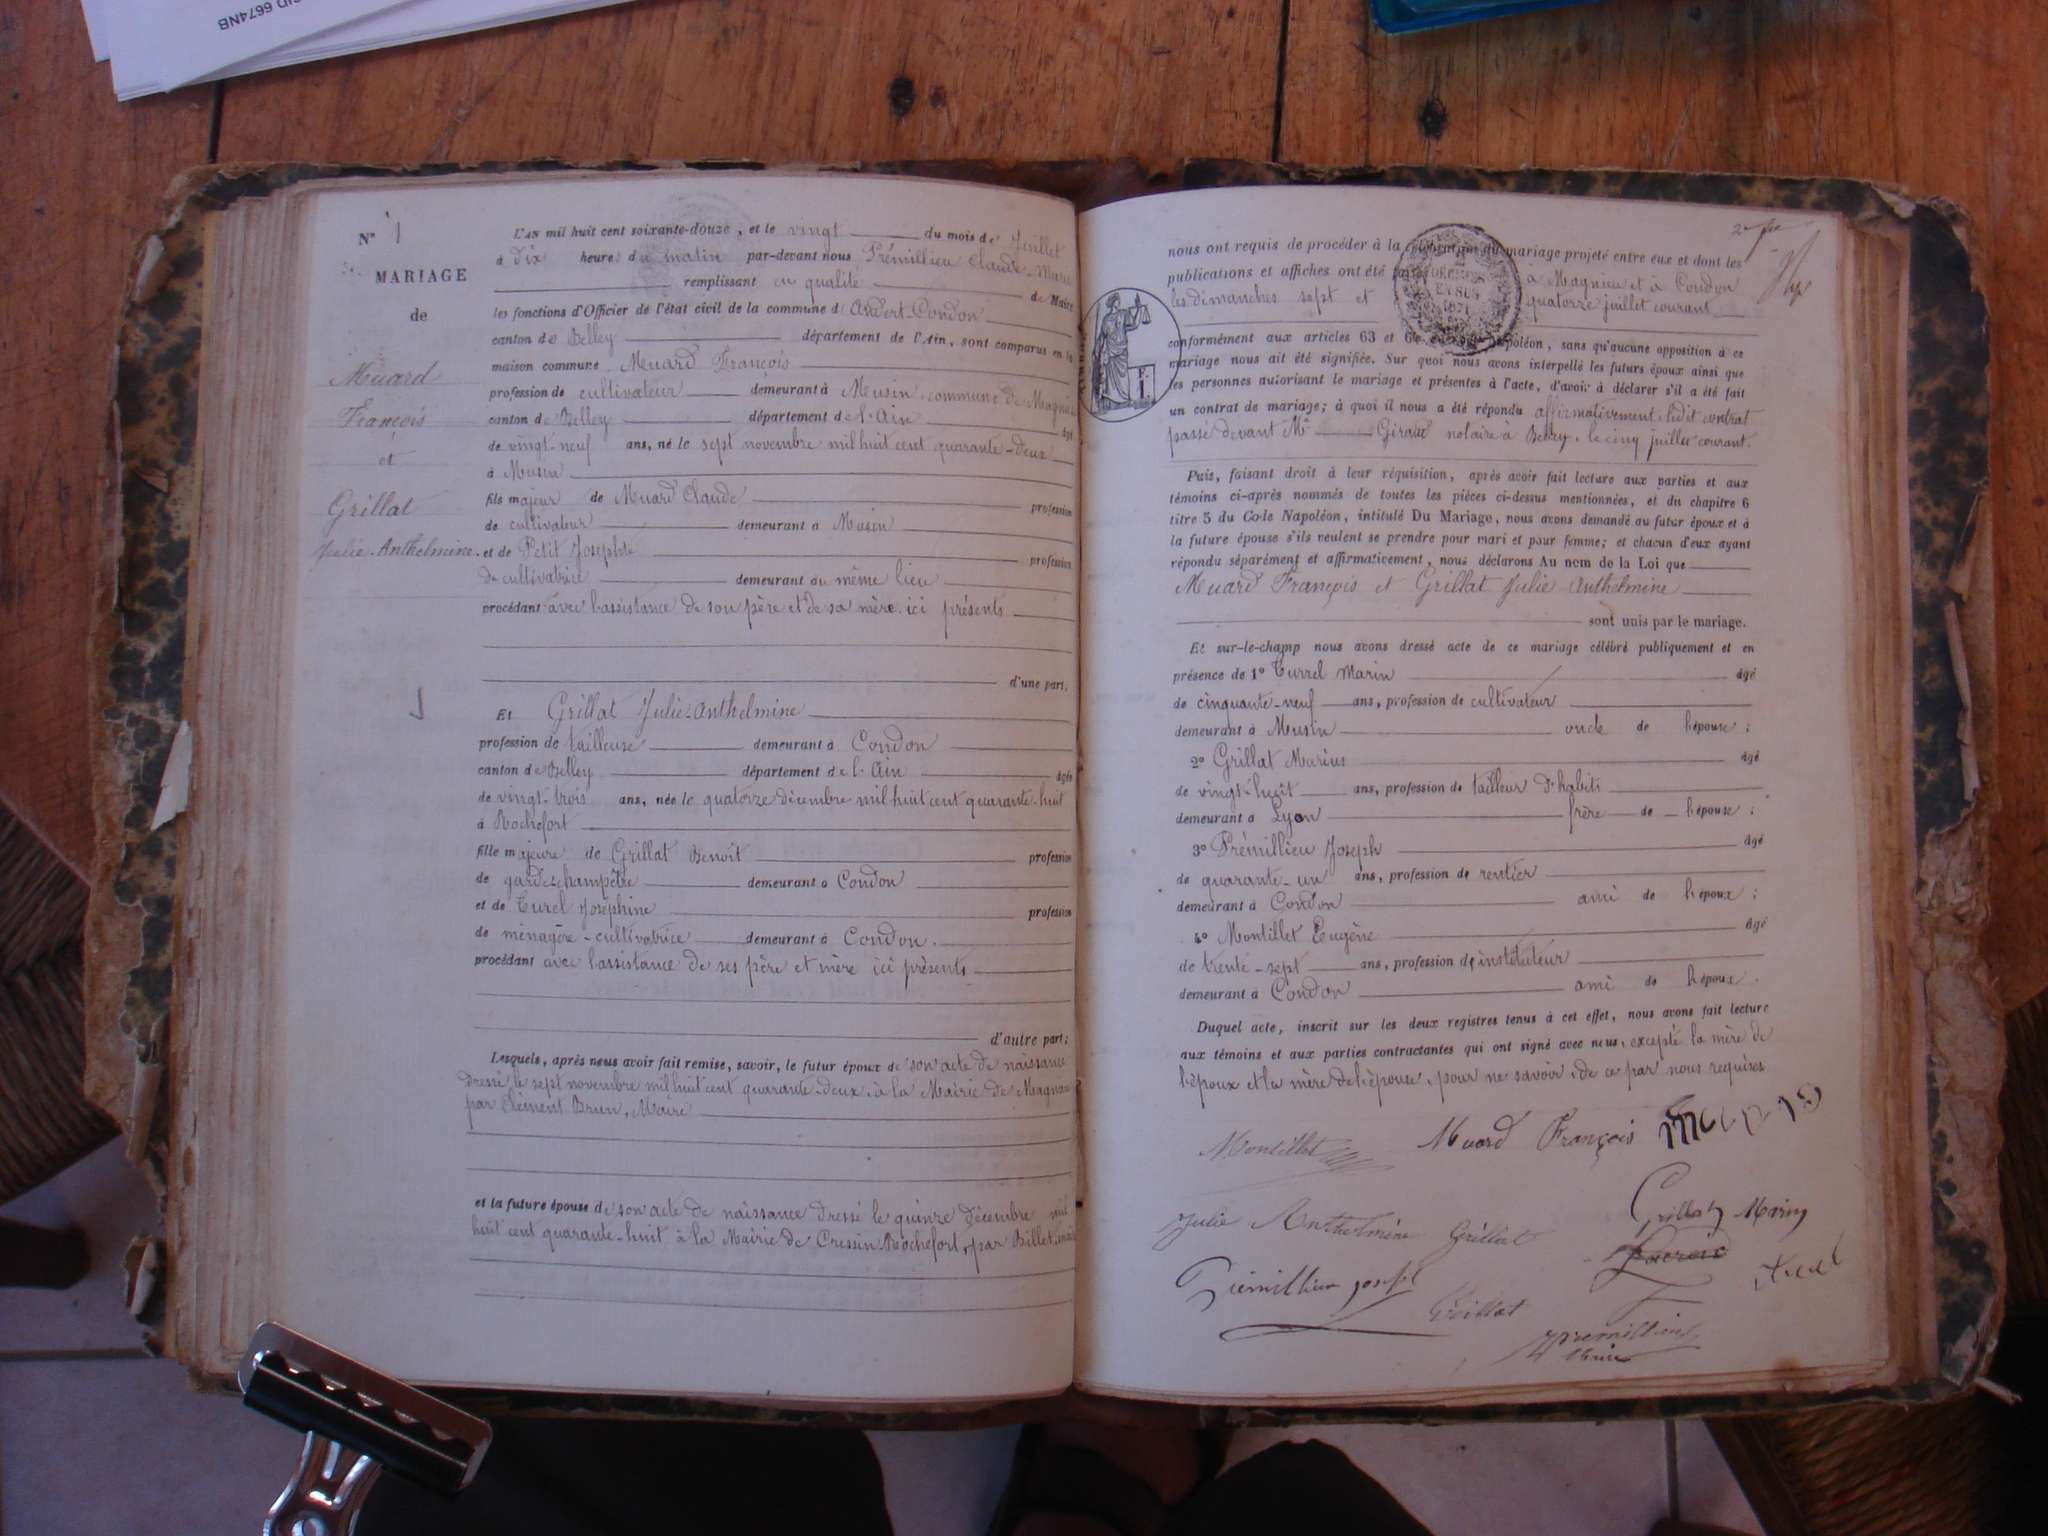 CID 6674NB
N° 1
MARIAGE
de
Muard
François
et
Grillat
Julie-Anthelmine.
L'AN mil huit cent soixante-douze, et le vingt du mois de Juillet
à dix heures du matin par-devant nous Prémillieu Claude-Marie
remplissant en qualité de Maire
les fonctions d'Officier de l'état civil de la commune d'Andert-Condon
canton de Belley département de l'Ain, sont comparus en la
maison commune Muard François
profession de cultivateur demeurant à Musin, commune de Magnieu
canton de Belley département de l'Ain âgé
de vingt-neuf ans, né le sept novembre mil huit cent quarante-deux
à Musin
fils majeur de Muard Claude profession
de cultivateur demeurant à Musin
et de Petit Josephte profession
de cultivatrice demeurant au même lieu
procédant avec l'assistance de son père et de sa mère ici présents
d'une part;
Et Grillat Julie-Anthelmine
profession de tailleuse demeurant à Condon
canton de Belley département de l'Ain âgée
de vingt-trois ans, née le quatorze décembre mil huit cent quarante-huit
à Rochefort
fille majeure de Grillat Benoît profession
de garde champêtre demeurant à Condon
et de Turel Joséphine profession
de ménagère-cultivatrice demeurant à Condon.
procédant avec l'assistance de ses père et mère ici présents
d'autre part;
Lesquels, après nous avoir fait remise, savoir, le futur époux de son acte de naissance
dressé le sept novembre mil huit cent quarante-deux, à la Mairie de Magnieu
par Clément Brun, Maire
et la future épouse de son acte de naissance dressé le quinze décembre mil
huit cent quarante-huit à la Mairie de Cressin-Rochefort, par Billet, maire
nous ont requis de procéder à la célébration du mariage projeté entre eux et dont les
publications et affiches ont été à Magnieu et à Condon
les dimanches sept et quatorze juillet courant
conformément aux articles 63 et Napoléon, sans qu'aucune opposition à ce
mariage nous ait été signifiée. Sur quoi nous avons interpellé les futurs époux ainsi que
les personnes autorisant le mariage et présentes à l'acte, d'avoir à déclarer s'il a été fait
un contrat de mariage; à quoi il nous a été répondu affirmativement, ledit contrat
passé devant Me Giraud notaire à Belley, le cinq juillet courant.
Puis, faisant droit à leur réquisition, après avoir fait lecture aux parties et aux
témoins ci-après nommés de toutes les pièces ci-dessus mentionnées, et du chapitre 6
titre 5 du Code Napoléon, intitulé Du Mariage, nous avons demandé au futur époux et à
la future épouse s'ils veulent se prendre pour mari et pour femme; et chacun d'eux ayant
répondu séparément et affirmativement, nous déclarons Au nom de la Loi que
Muard François et Grillat Julie Anthelmine
sont unis par le mariage.
Et sur-le-champ nous avons dressé acte de ce mariage célébré publiquement et en
présence de 1° Turrel Marin âgé
de cinquante-neuf ans, profession de cultivateur
demeurant à Musin oncle de l'épouse;
2° Grillat Marius âgé
de vingt-huit ans, profession de tailleur d'habits
demeurant à Lyon frère de l'épouse;
3° Prémillieu Joseph âgé
de quarante-un ans, profession de rentier
demeurant à Condon ami de l'époux;
4° Montillet Eugène âgé
de trente-sept ans, profession de instituteur
demeurant à Condon ami de l'époux.
Duquel acte, inscrit sur les deux registres tenus à cet effet, nous avons fait lecture
aux témoins et aux parties contractantes qui ont signé avec nous, excepté la mère de
l'époux et la mère de l'épouse, pour ne savoir, de ce par nous requises
Montillet Muard François
Julie Anthelmine Grillat Grillat
Prémillieu Joseph
Grillat
Premillieu
Maire